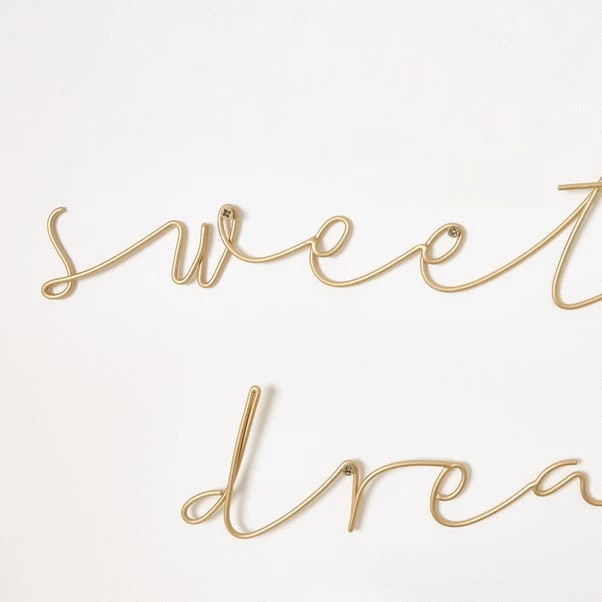 sweet
drea